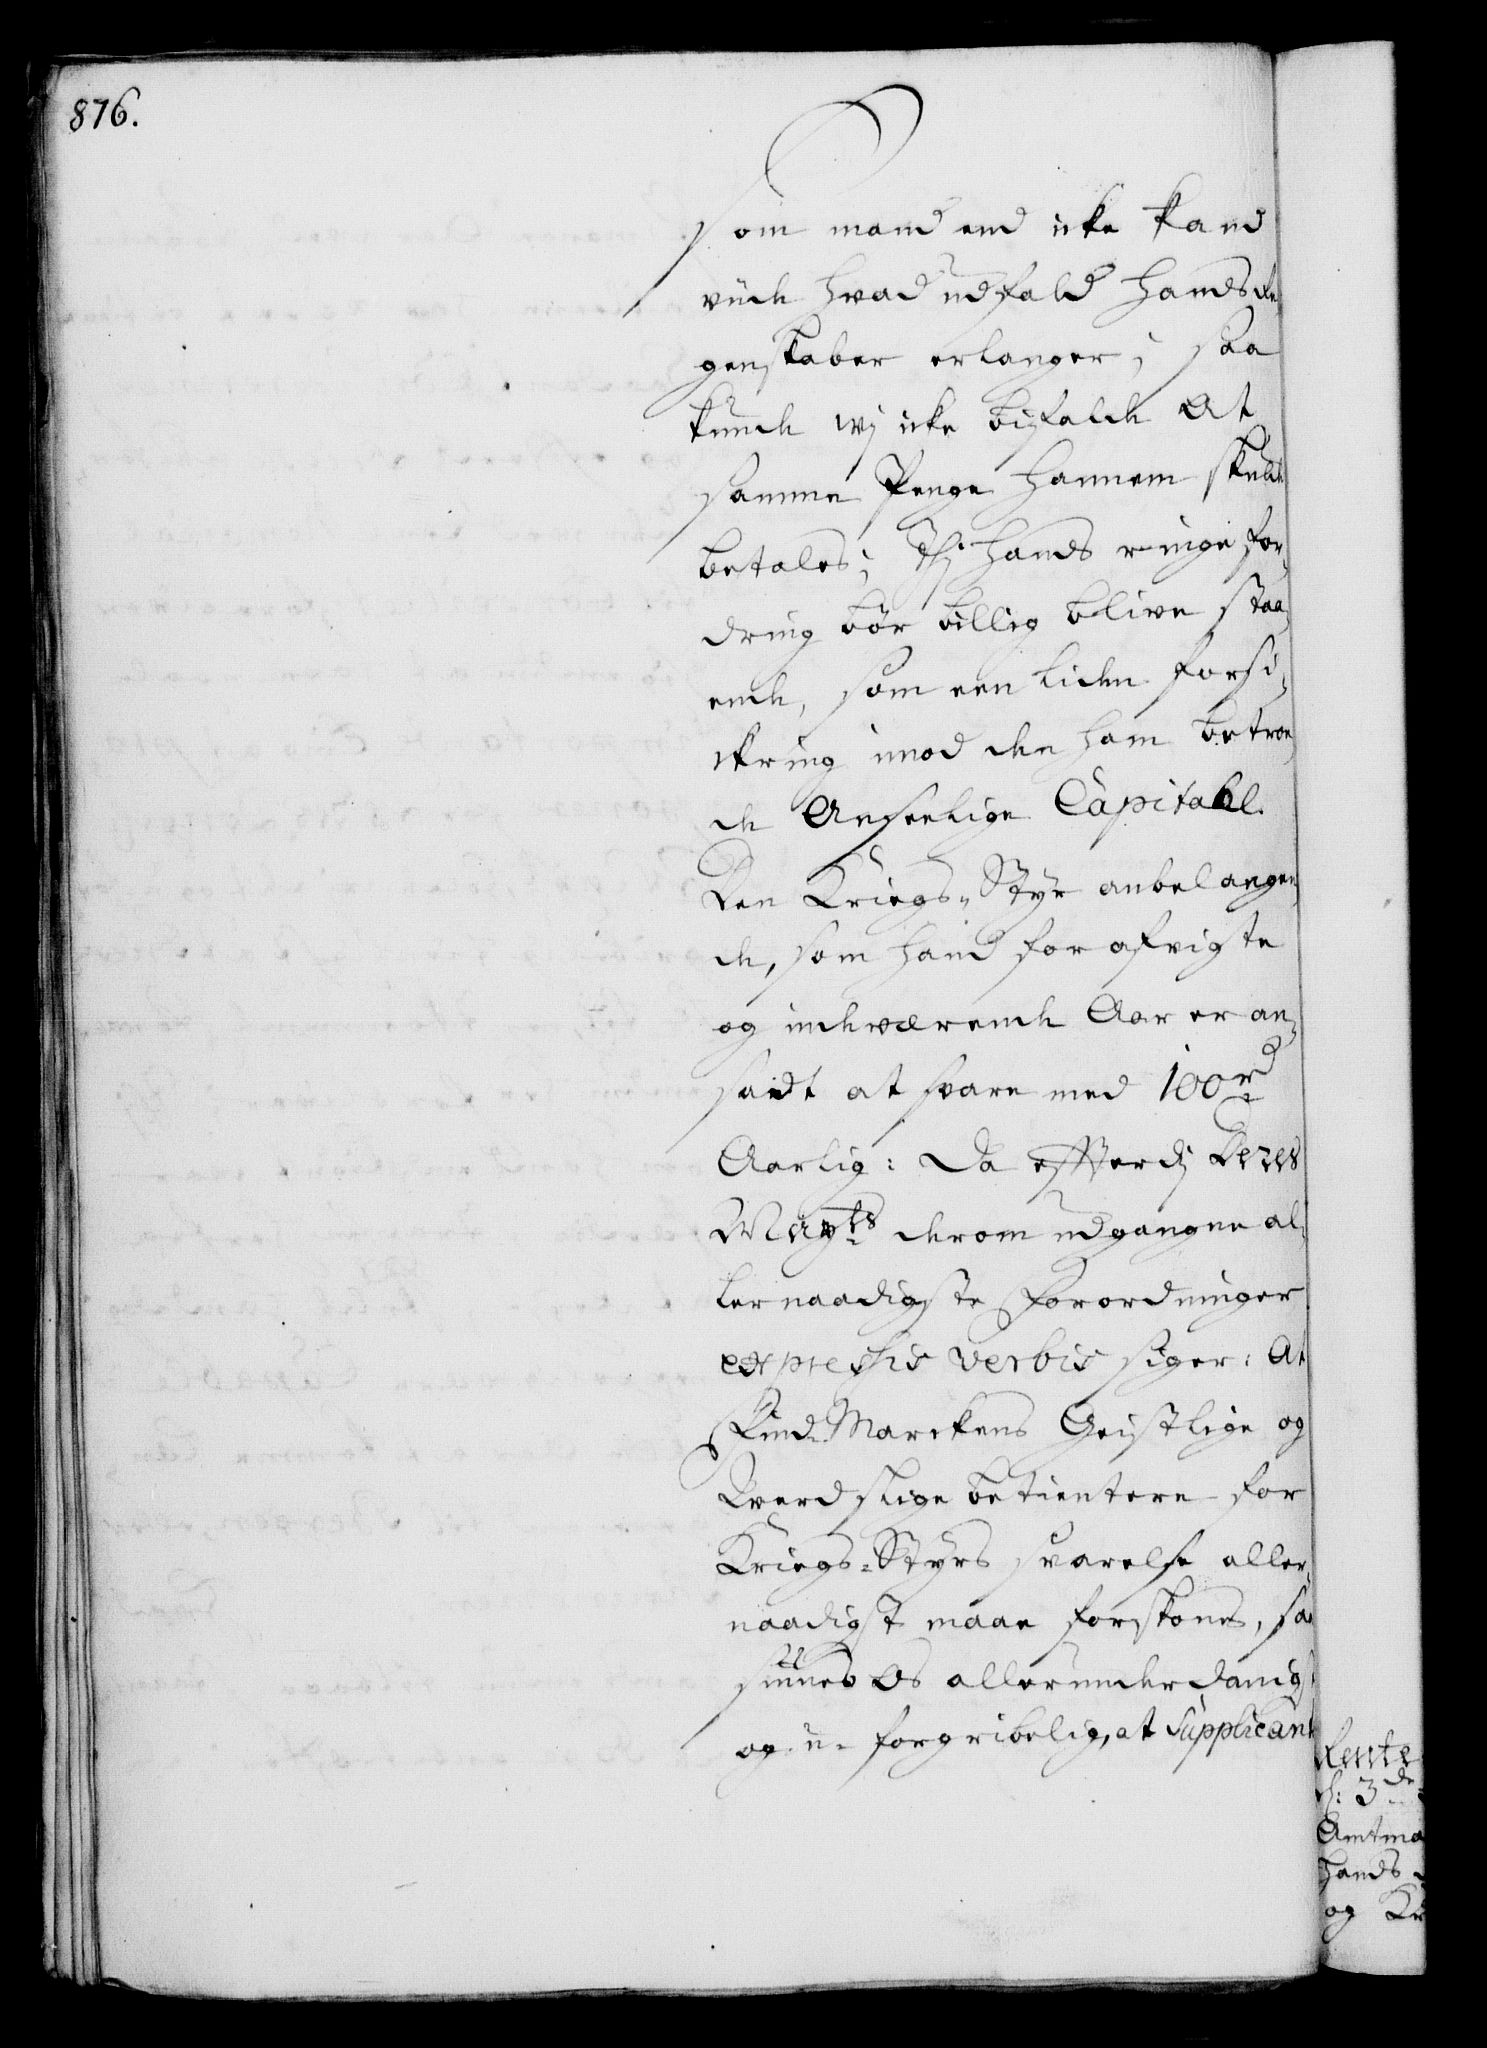 876.
som mand end icke kand
viide hvad udfald hands Re¬
genskaber erlanger; saa
kunde wj icke bifalde At
samme Penge hannem skulde
betales; Thj hands ringe for¬
dring bør billig blive staa¬
ende, som een liden forsi¬
kring imod den ham betroe¬
de Anseelige Capitahl.
Den Kriegs-Styr anbelangen¬
de, som hand for afvigte
og indeværende Aar er an¬
sadt at svare med 100 rd
Aarlig: Da efftterdj Deres
Mayts derom udgangne al¬
lernaadigste Forordninger
expressis verbis siger: At
Find-Marckens Geistlige og
Werdslige betientere for
Kriegs-Styrs svarelse aller¬
naadigst maae forskones, saa
siunes Os allerunderdanigst
og u-forgribelig, at Supplicant
Rente
d: 3de
Amtma
hands
og Kr